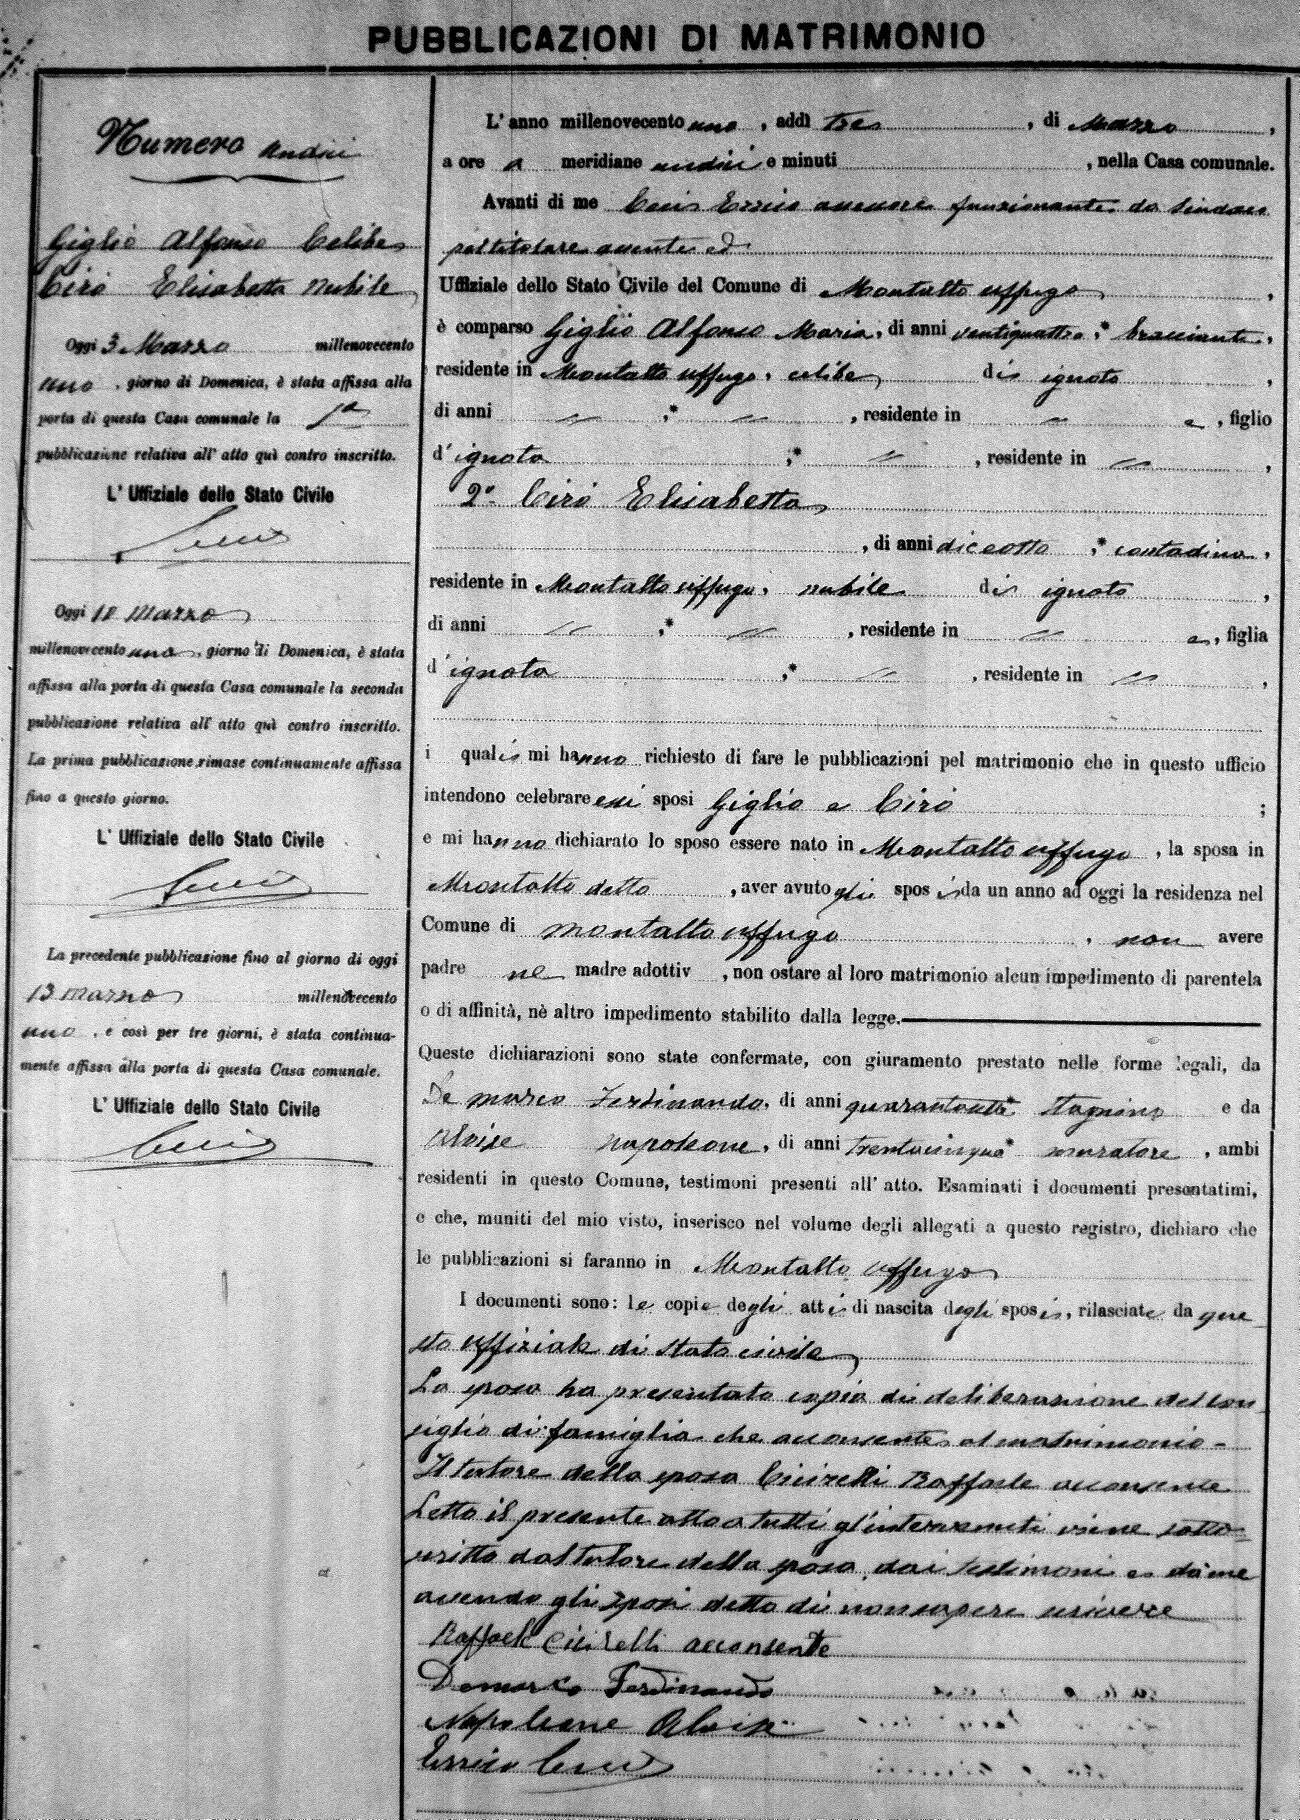 PUBBLICAZIONI DI MATRIMONIO
Numero undici
Giglio Alfonso Celibe
Cirò Elisabetta nubile
Oggi 3 Marzo millenovecento
uno, giorno di Domenica, è stata affissa alla
porta di questa Casa comunale la 1a
pubblicazione relativa all'atto quì contro inscritto.
L'Uffiziale dello Stato Civile
Oggi 10 marzo
millenovecento uno, giorno di Domenica, è stata
affissa alla porta di questa Casa comunale la seconda
pubblicazione relativa all'atto quì contro inscritto.
La prima pubblicazione, rimase continuamente affissa
fino a questo giorno.
L'Uffiziale dello Stato Civile
La precedente pubblicazione fino al giorno di oggi
13 marzo millenovecento
uno, e così per tre giorni, è stata continua-
mente affissa alla porta di questa Casa comunale.
L'Uffiziale dello Stato Civile
L'anno millenovecento uno, addì tre, di Marzo,
a ore a meridiane undici e minuti , nella Casa comunale.
Avanti di me Errico assessore funzionante da Sindaco
pel titolare assente ed
Uffiziale dello Stato Civile del Comune di Montalto Uffugo,
è comparso Giglio Alfonso Maria, di anni ventiquattro,* bracciante,
residente in Montalto Uffugo, celibe di ignoto,
di anni " ,* " , residente in " e, figlio
d'ignota ,* " , residente in " ,
2° Cirò Elisabetta
, di anni diciotto ,* contadina,
residente in Montalto Uffugo, nubile di ignoto,
di anni " ,* " , residente in " e, figlia
d'ignota ,* " , residente in " ,
i quali mi hanno richiesto di fare le pubblicazioni pel matrimonio che in questo ufficio
intendono celebrare essi sposi Giglio e Cirò ;
e mi hanno dichiarato lo sposo essere nato in Montalto Uffugo, la sposa in
Montalto detto, aver avuto gli sposi da un anno ad oggi la residenza nel
Comune di Montalto Uffugo, non avere
padre ne madre adottiv , non ostare al loro matrimonio alcun impedimento di parentela
o di affinità, nè altro impedimento stabilito dalla legge.
Queste dichiarazioni sono state confermate, con giuramento prestato nelle forme legali, da
De Marco Ferdinando, di anni * stagnino e da
Aloise Napoleone, di anni trentacinque* muratore, ambi
residenti in questo Comune, testimoni presenti all'atto. Esaminati i documenti presentatimi,
e che, muniti del mio visto, inserisco nel volume degli allegati a questo registro, dichiaro che
le pubblicazioni si faranno in Montalto Uffugo
I documenti sono: le copie degli atti di nascita degli sposi, rilasciate da que
sto uffiziale di stato civile
La sposa ha presentato copia di deliberazione del con
siglio di famiglia che acconsente al matrimonio -
Il tutore della sposa Cicirelli Raffaele acconsente
Letto il presente atto a tutti gl'intervenuti viene sotto
scritto dal tutore della sposa, dai testimoni e da me
avendo gli sposi detto di non sapere scrivere
Raffaele Cicirelli acconsente
Demarco Ferdinando
Napoleone Aloise
Errico